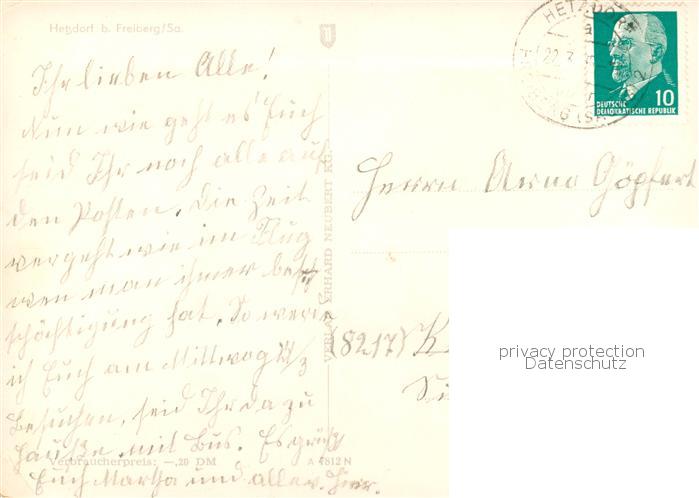 Hetzdorf b. Freiberg/Sa.
Ihr lieben Alle!
Nun wie geht es Euch
seid Ihr noch alle auf
den Posten. Die Zeit
vergeht wie im Flug
wen man ihmer besch
schäftigung hat. So werde
ich Euch am Mittwog
Besuchen, seid Ihr da zu
Hause mit Bus. Es grüßt
Euch Martha und alle
Verbraucherpreis: —,20 DM
A 4812 N
VERLAG ERHARD NEUBERT KG.
HETZDORF
22.7.
DEUTSCHE
DEMOKRATISCHE REPUBLIK
10
Herrn Arno Göpfert
(8217) K
privacy protection
Datenschutz